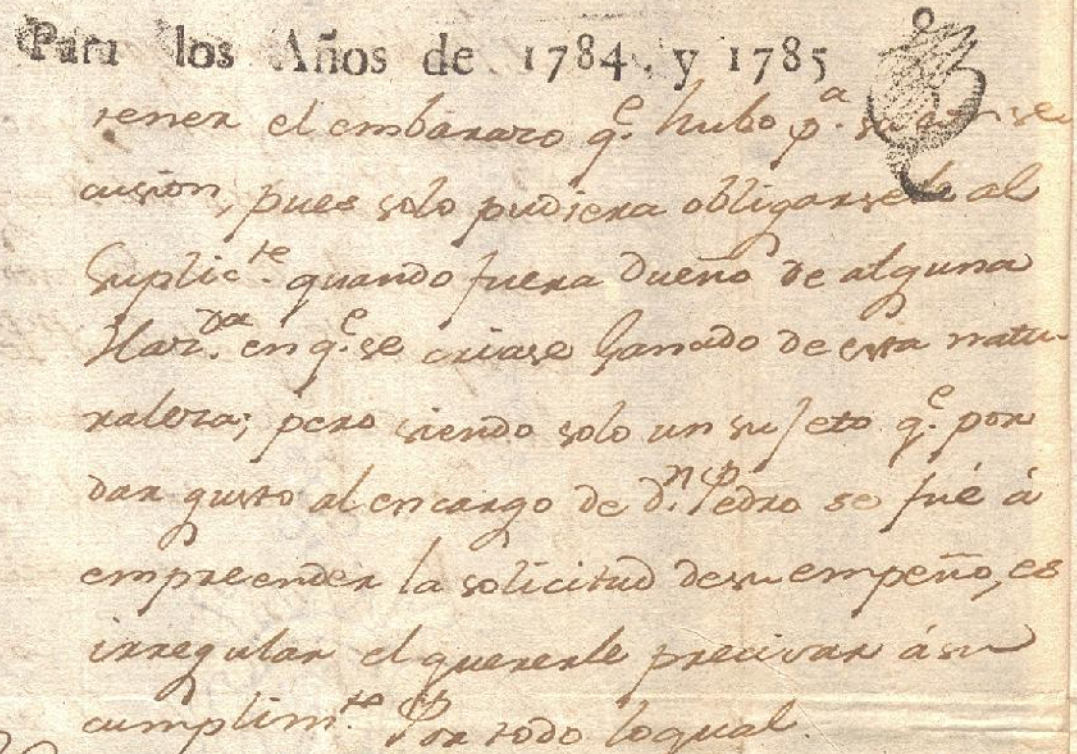 Para los Años de 1784. y 1785
tener el embarazo q.e hubo p.a su conse
cusion, pues solo pudiera obligarsele al
Suplic.te quando fuera Dueño de alguna
Haz.da en q.e se criase Ganado de esta natu-
raleza; pero siendo solo un sujeto q.e por
dar gusto al encargo de D.n Pedro se fué á
empreender la solicitud de su empeño, es
irregular el quererle precisar á su
cumplim.to Por todo loqual.